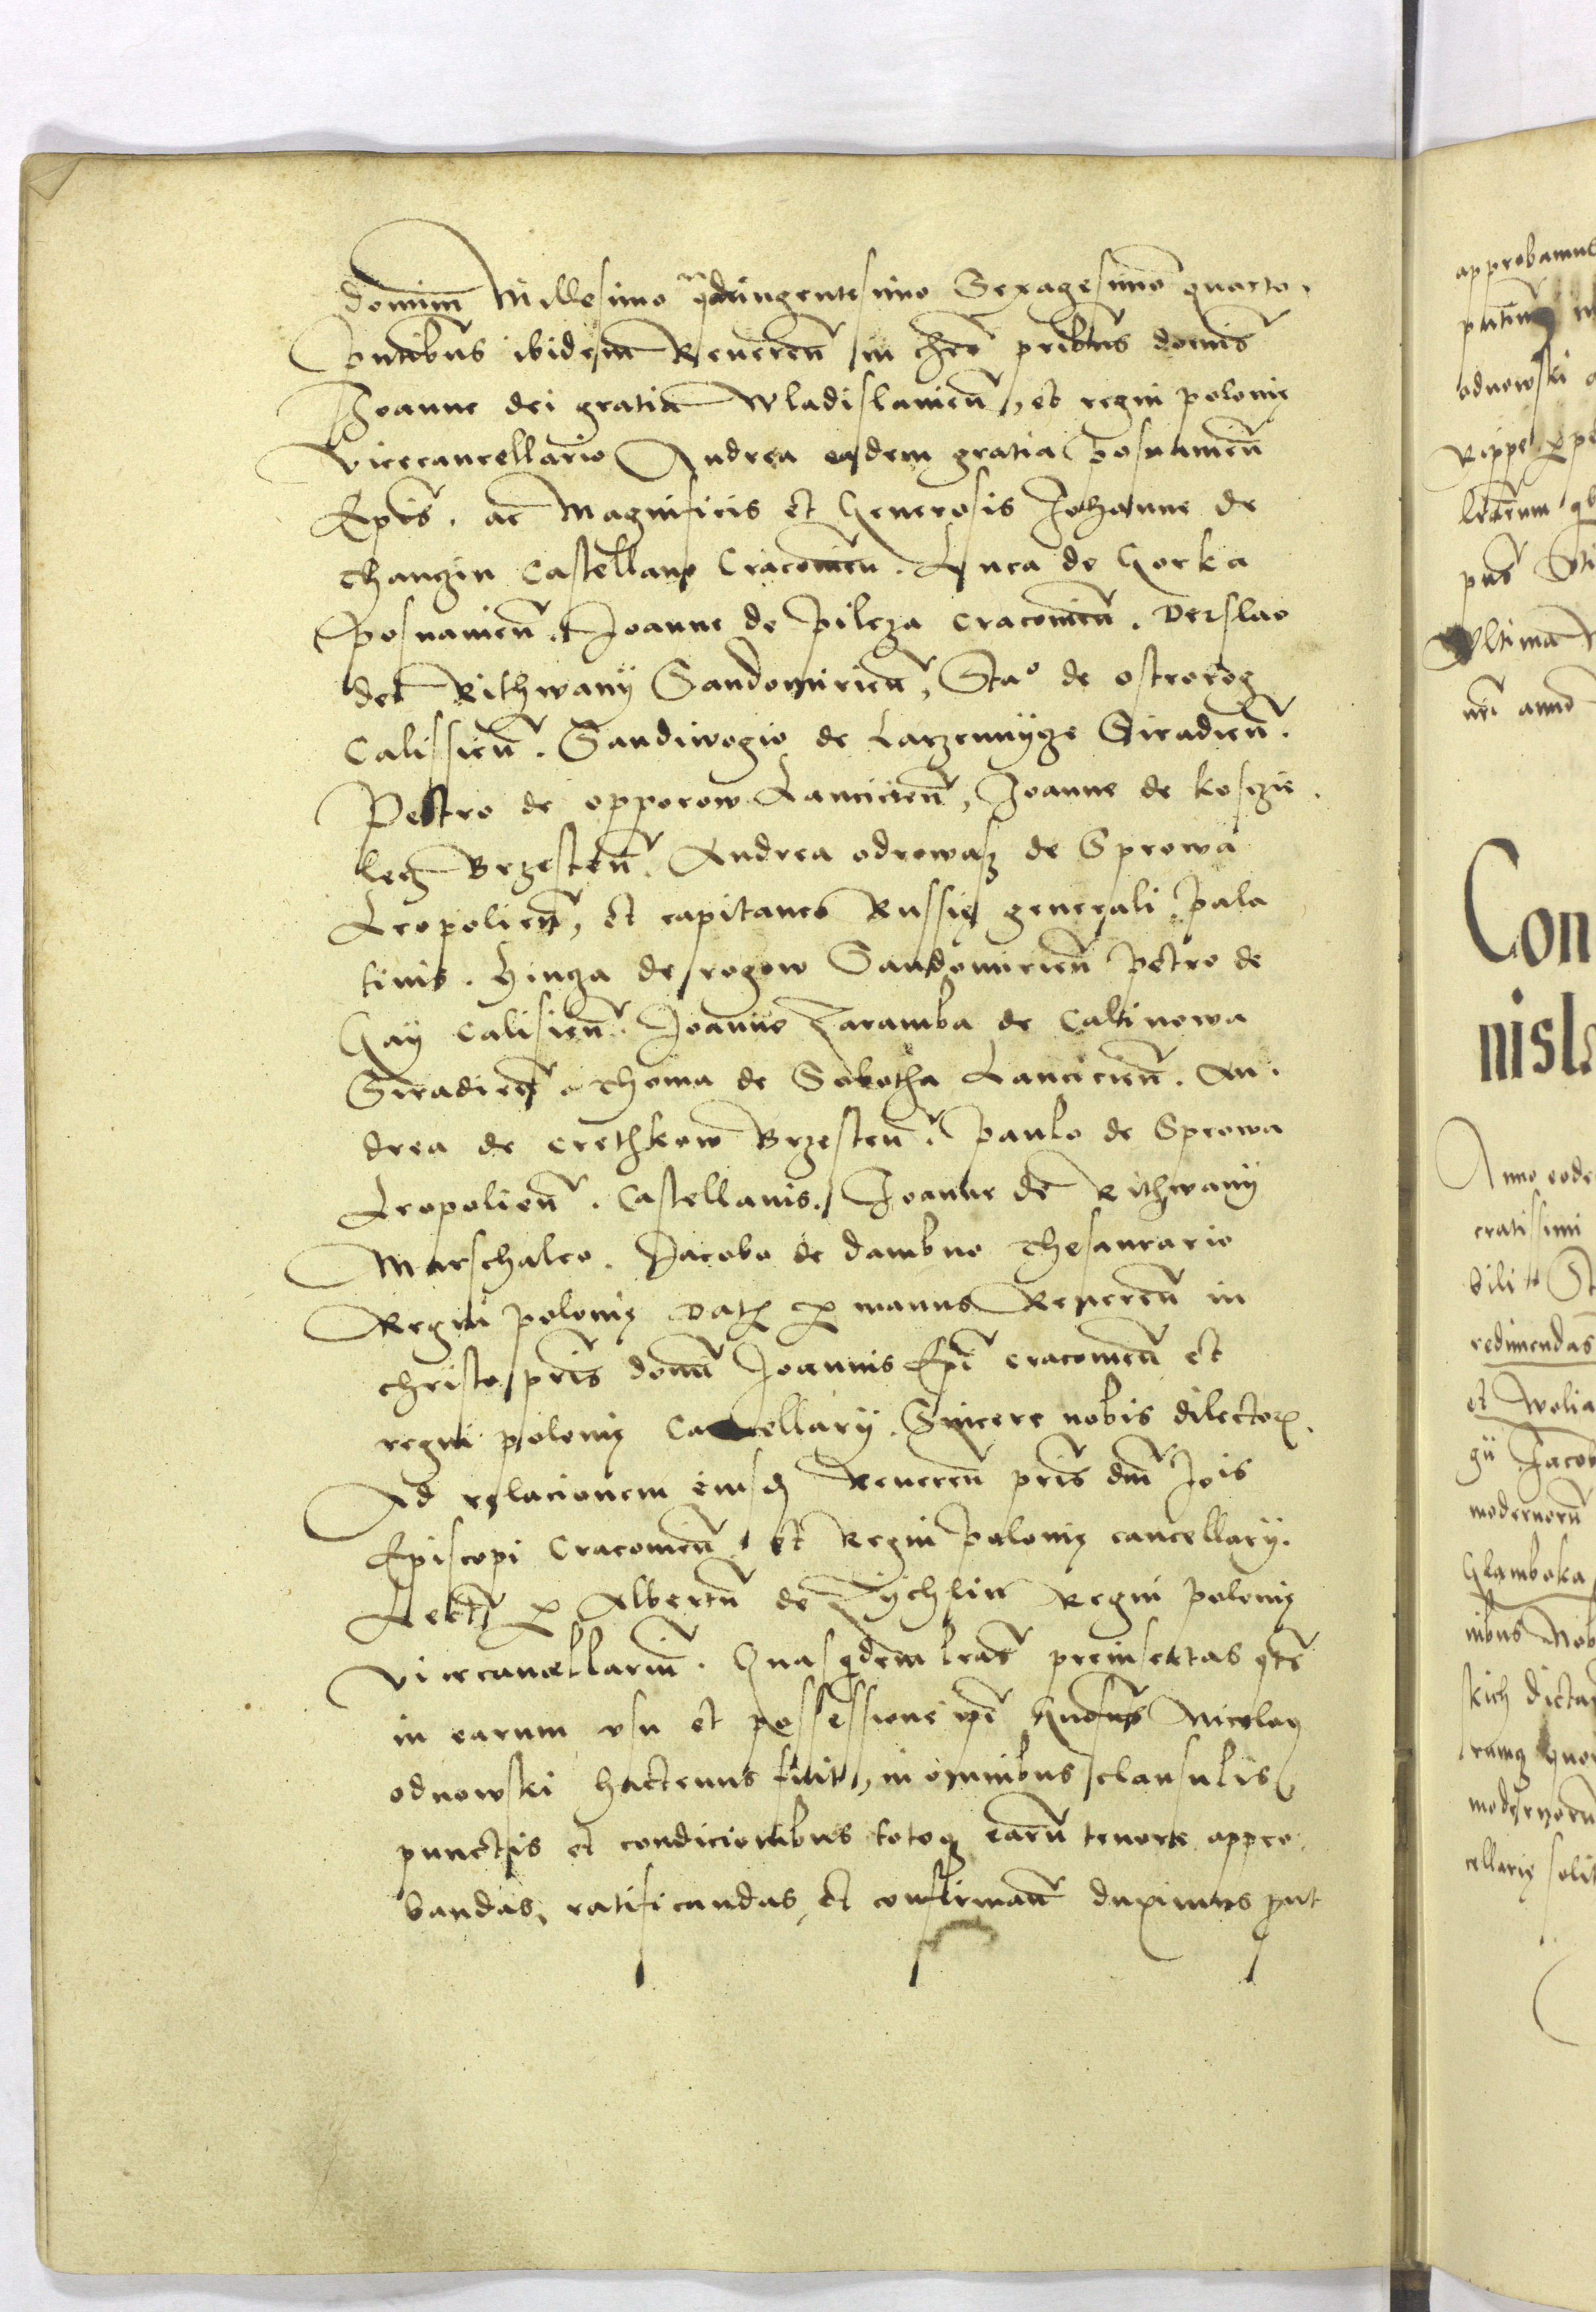 dominim Millesimo q̃dringentesimo Sexagesimo quarto.
Pñtibus ibidem Reueren̄ in chr̃o pr̃ibus domīs
Joanne dei gratia Wladislauien̄, et regni polonię
vicecancellario Andrea eadem gratia Posnanien̄
Ep̃is. ac Magnificis et Generosis Johanne de
Thanzin castellano Cracouien̄. Luca de Gorka
Posnanien̄. Joanne de Pilcza Cracouien̄. Derslao
de Rithwany Sandomirien̄, Sta° de ostrorog
Calissien̄. Sandiwogio de Larzennycze Siradien̄.
Petro de opporow Lancicien̄, Joanne de kosczie
lecz Brzesten̄. Andrea odrowasz de Sprowa
Leopolien̄, et capitaneo Russię generali, Pala
tinis. Hinza de rogow Sandomirien̄ Petro de
Gay calisien̄. Joanne Zaramba de Calinowa
Siradien̄. Thoma de Sobotha Lancicien̄. An.
drea de crethkow Brzesten̄. Paulo de Sprowa
Leopolien̄. Castellanis. Joanne de Rithwany
Marschalco. Jacobo de dambno Thesaurario
Regni polonię Datꝝ ꝑ manus Reueren̄ in
christo pr̃is domī Joannis Ep̃i cracouien̄ et
regni polonię Cancellarÿ. Sincere nobis dilectoꝝ.
Ad relacionem eiusdꝫ Reueren̄ pr̃is dn̄i Jo̅is
Episcopi Cracouien̄ et Regni Polonię cancellarÿ.
ꝑ Albertū de Zÿchlin Regni polonię
vicecancellariū. Quasqdem lr̃as preinsertas
in earum vsu et possessione Nicolaꝰ
odnowski hactenus fuit, in omnibus clausulis
punctis et condicionibus totoqꝫ earū tenore appro
bandas, ratificandas, et confirman̄ duximus ꝓut
approbamus
odnowski
Ultima
anno
Con
nisl
Anno eode
cratissimi
bili St
redimendas
et Wolia
gii Jacob
modernorū
Glamboka
nibus Nob
skich dicta
modernorū
cellarię solit